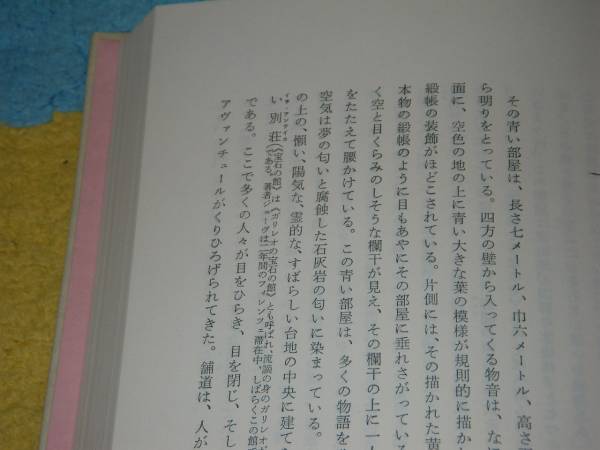 その青い部屋は、長さ七メートル、巾六メートル、高さ
ら明りをとっている。四方の壁から入ってくる物音は、な
面に、空色の地の上に青い大きな葉の模様が規則的に描か
緞帳の装飾がほどこされている。片側には、その描かれた黄
本物の緞帳のように目もあやにその部屋に垂れさがっている
く空と目くらみのしそうな欄干が見え、その欄干の上に一
をたたえて腰かけている。この青い部屋は、多くの物語を
空気は夢の匂いと腐蝕した石灰岩の匂いに染まっている。
の上の、懶い、陽気な、霊的な、すばらしい台地の中央に建て
い別荘(《宝石の館》は《ガリレオの宝石の館》とも呼ばれ、流謫の身のガリレオが
である。著者ジューヴは二年間のフィレンツェ滞在中、しばらくこの館で
である。ここで多くの人々が目をひらき、目を閉じ、そし
アヴァンチュールがくりひろげられてきた。舗道は、人が